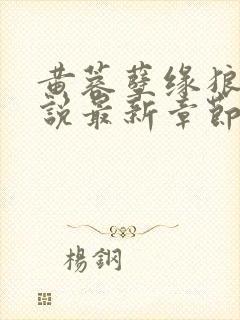 黄蓉孽缘狼
說最新章節
楊鋼